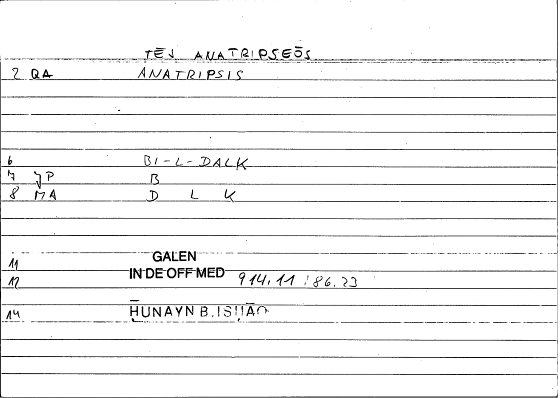 TĒS ANATRIPSEŌS
2 QA ANATRIPSIS
6 BI-L-DALK
7 JP B
8 MA D L K
11 GALEN
12 IN DE OFF MED 914.11 : 86.23
14 ḤUNAYN B. ISḤĀQ